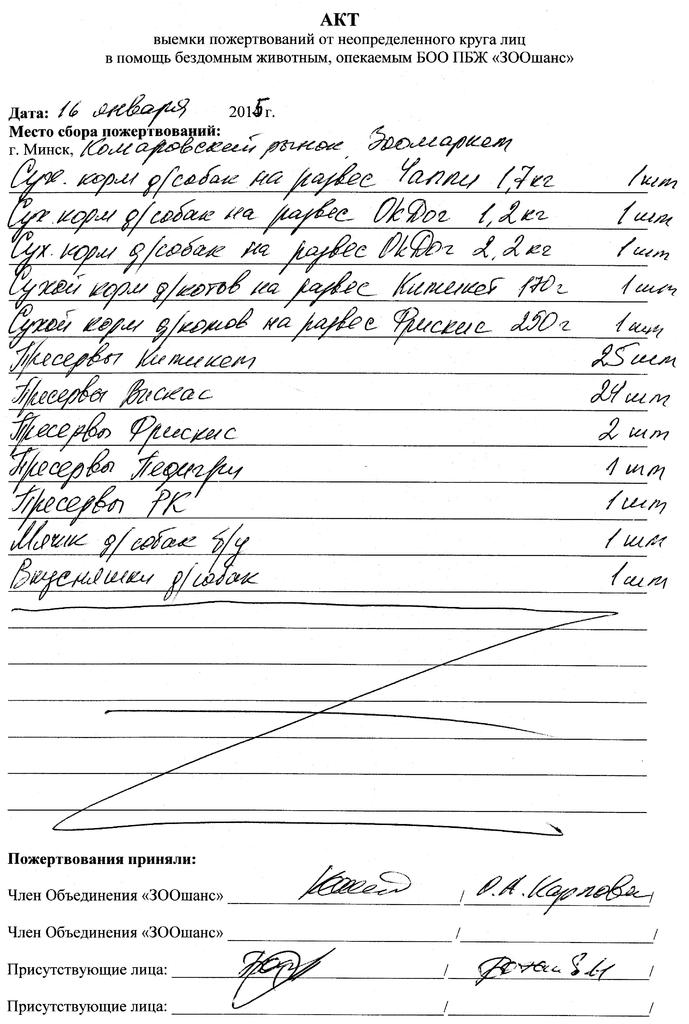 АКТ
выемки пожертвований от неопределенного круга лиц
в помощь бездомным животным, опекаемым БОО ПБЖ «ЗООшанс»
Дата: 16 января 2015 г.
Место сбора пожертвований:
г. Минск, Комаровский рынок, Зоомаркет
Сух. корм д/собак на развес Чаппи 1,7кг 1 шт
Сух. корм д/собак на развес ОкДог 1,2 кг 1 шт
Сух. корм д/собак на развес ОкДог 2,2 кг 1 шт
Сухой корм д/котов на развес Китикет 170г 1 шт
Сухой корм д/котов на развес Фрискис 250 г 1 шт
Пресервы Китикет 25 шт
Пресервы Вискас 24 шт
Пресервы Фрискис 2 шт
Пресервы Педигри 1 шт
Пресервы РК 1 шт
Мячик д/собак б/у 1 шт
Вкусняшки д/собак 1 шт
Пожертвования приняли:
Член Объединения «ЗООшанс» / О.А. Карпович /
Член Объединения «ЗООшанс» / /
Присутствующие лица: / /
Присутствующие лица: / /